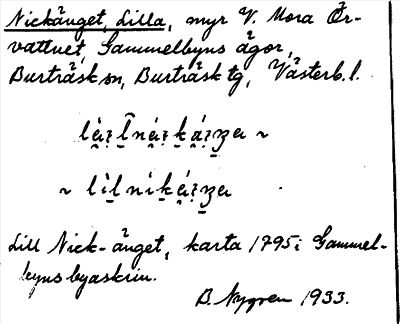 Nickänget, Lilla, myr V. Mora Ör-
vattnet Gammelbyns ägor,
Burträsk sn, Burträsk tg, Västerb. l.
~
~
Lill Nick-änget, karta 1795 i Gammel-
byns byaskrin.
B. Nygren 1933.